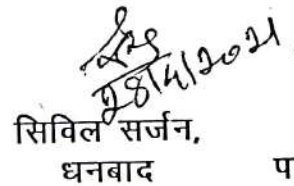 28/4/2021
सिविल सर्जन,
धनबाद प